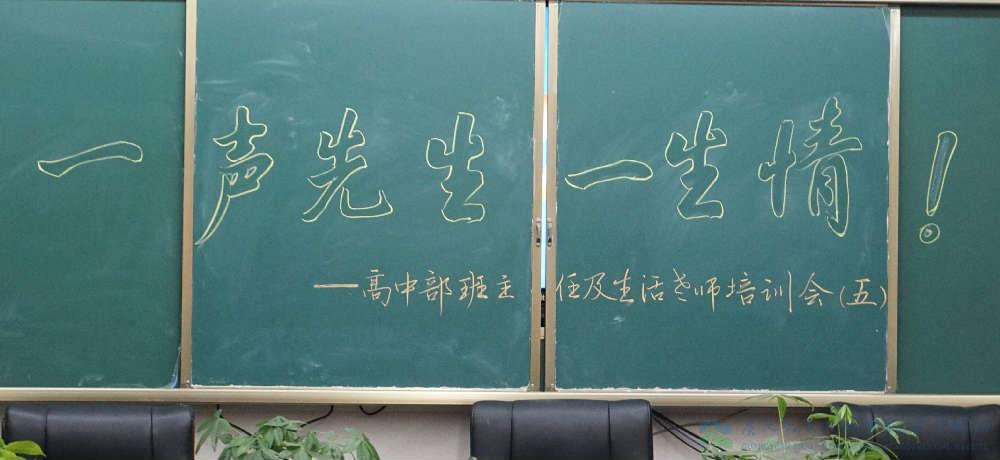 一声先生一生情！
—高中部班主任及生活老师培训会(五)